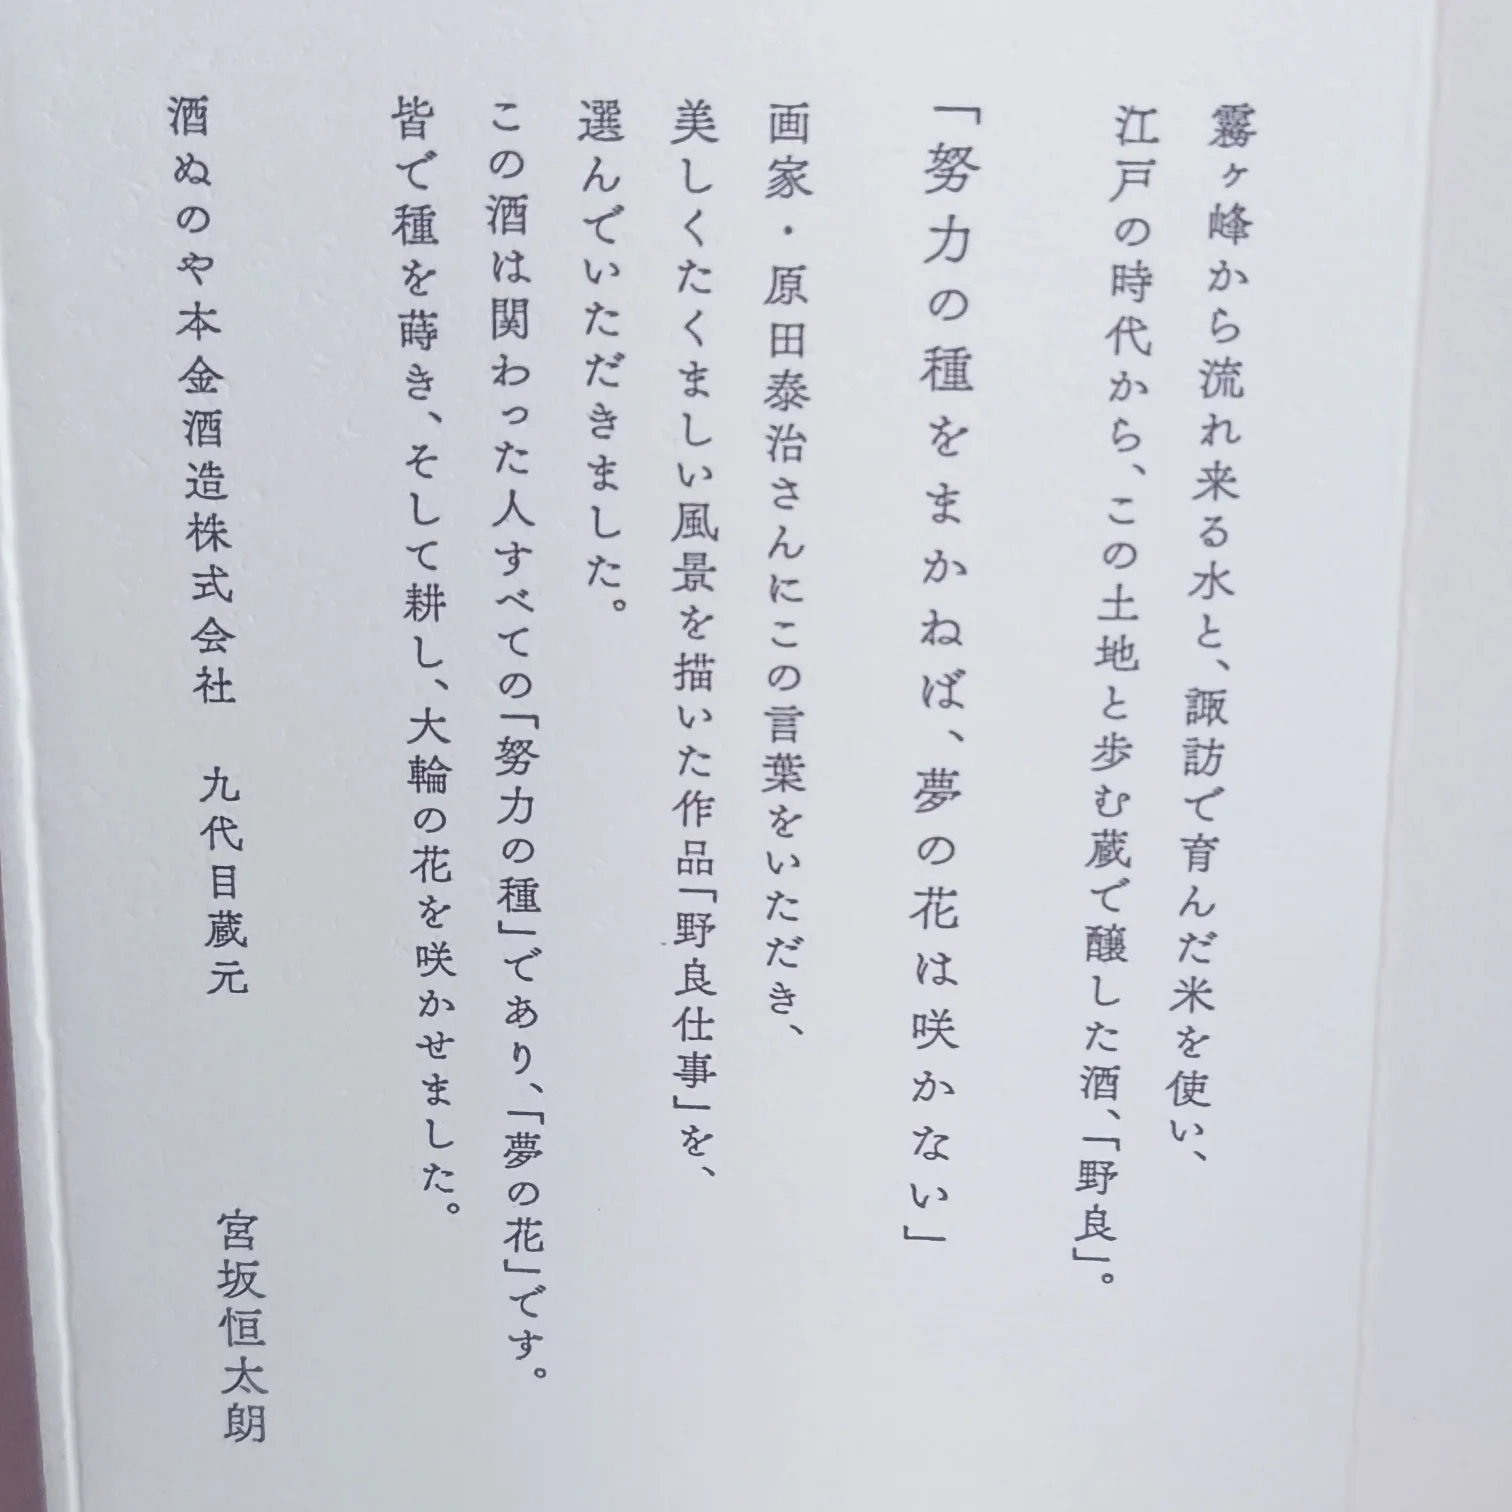 霧ヶ峰から流れ来る水と、諏訪で育んだ米を使い、
江戸の時代から、この土地と歩む蔵で醸した酒、「野良」。
「努力の種をまかねば、夢の花は咲かない」
画家・原田泰治さんにこの言葉をいただき、
美しくたくましい風景を描いた作品「野良仕事」を、
選んでいただきました。
この酒は関わった人すべての「努力の種」であり、「夢の花」です。
皆で種を蒔き、そして耕し、大輪の花を咲かせました。
酒ぬのや本金酒造株式会社 九代目蔵元 宮坂恒太朗